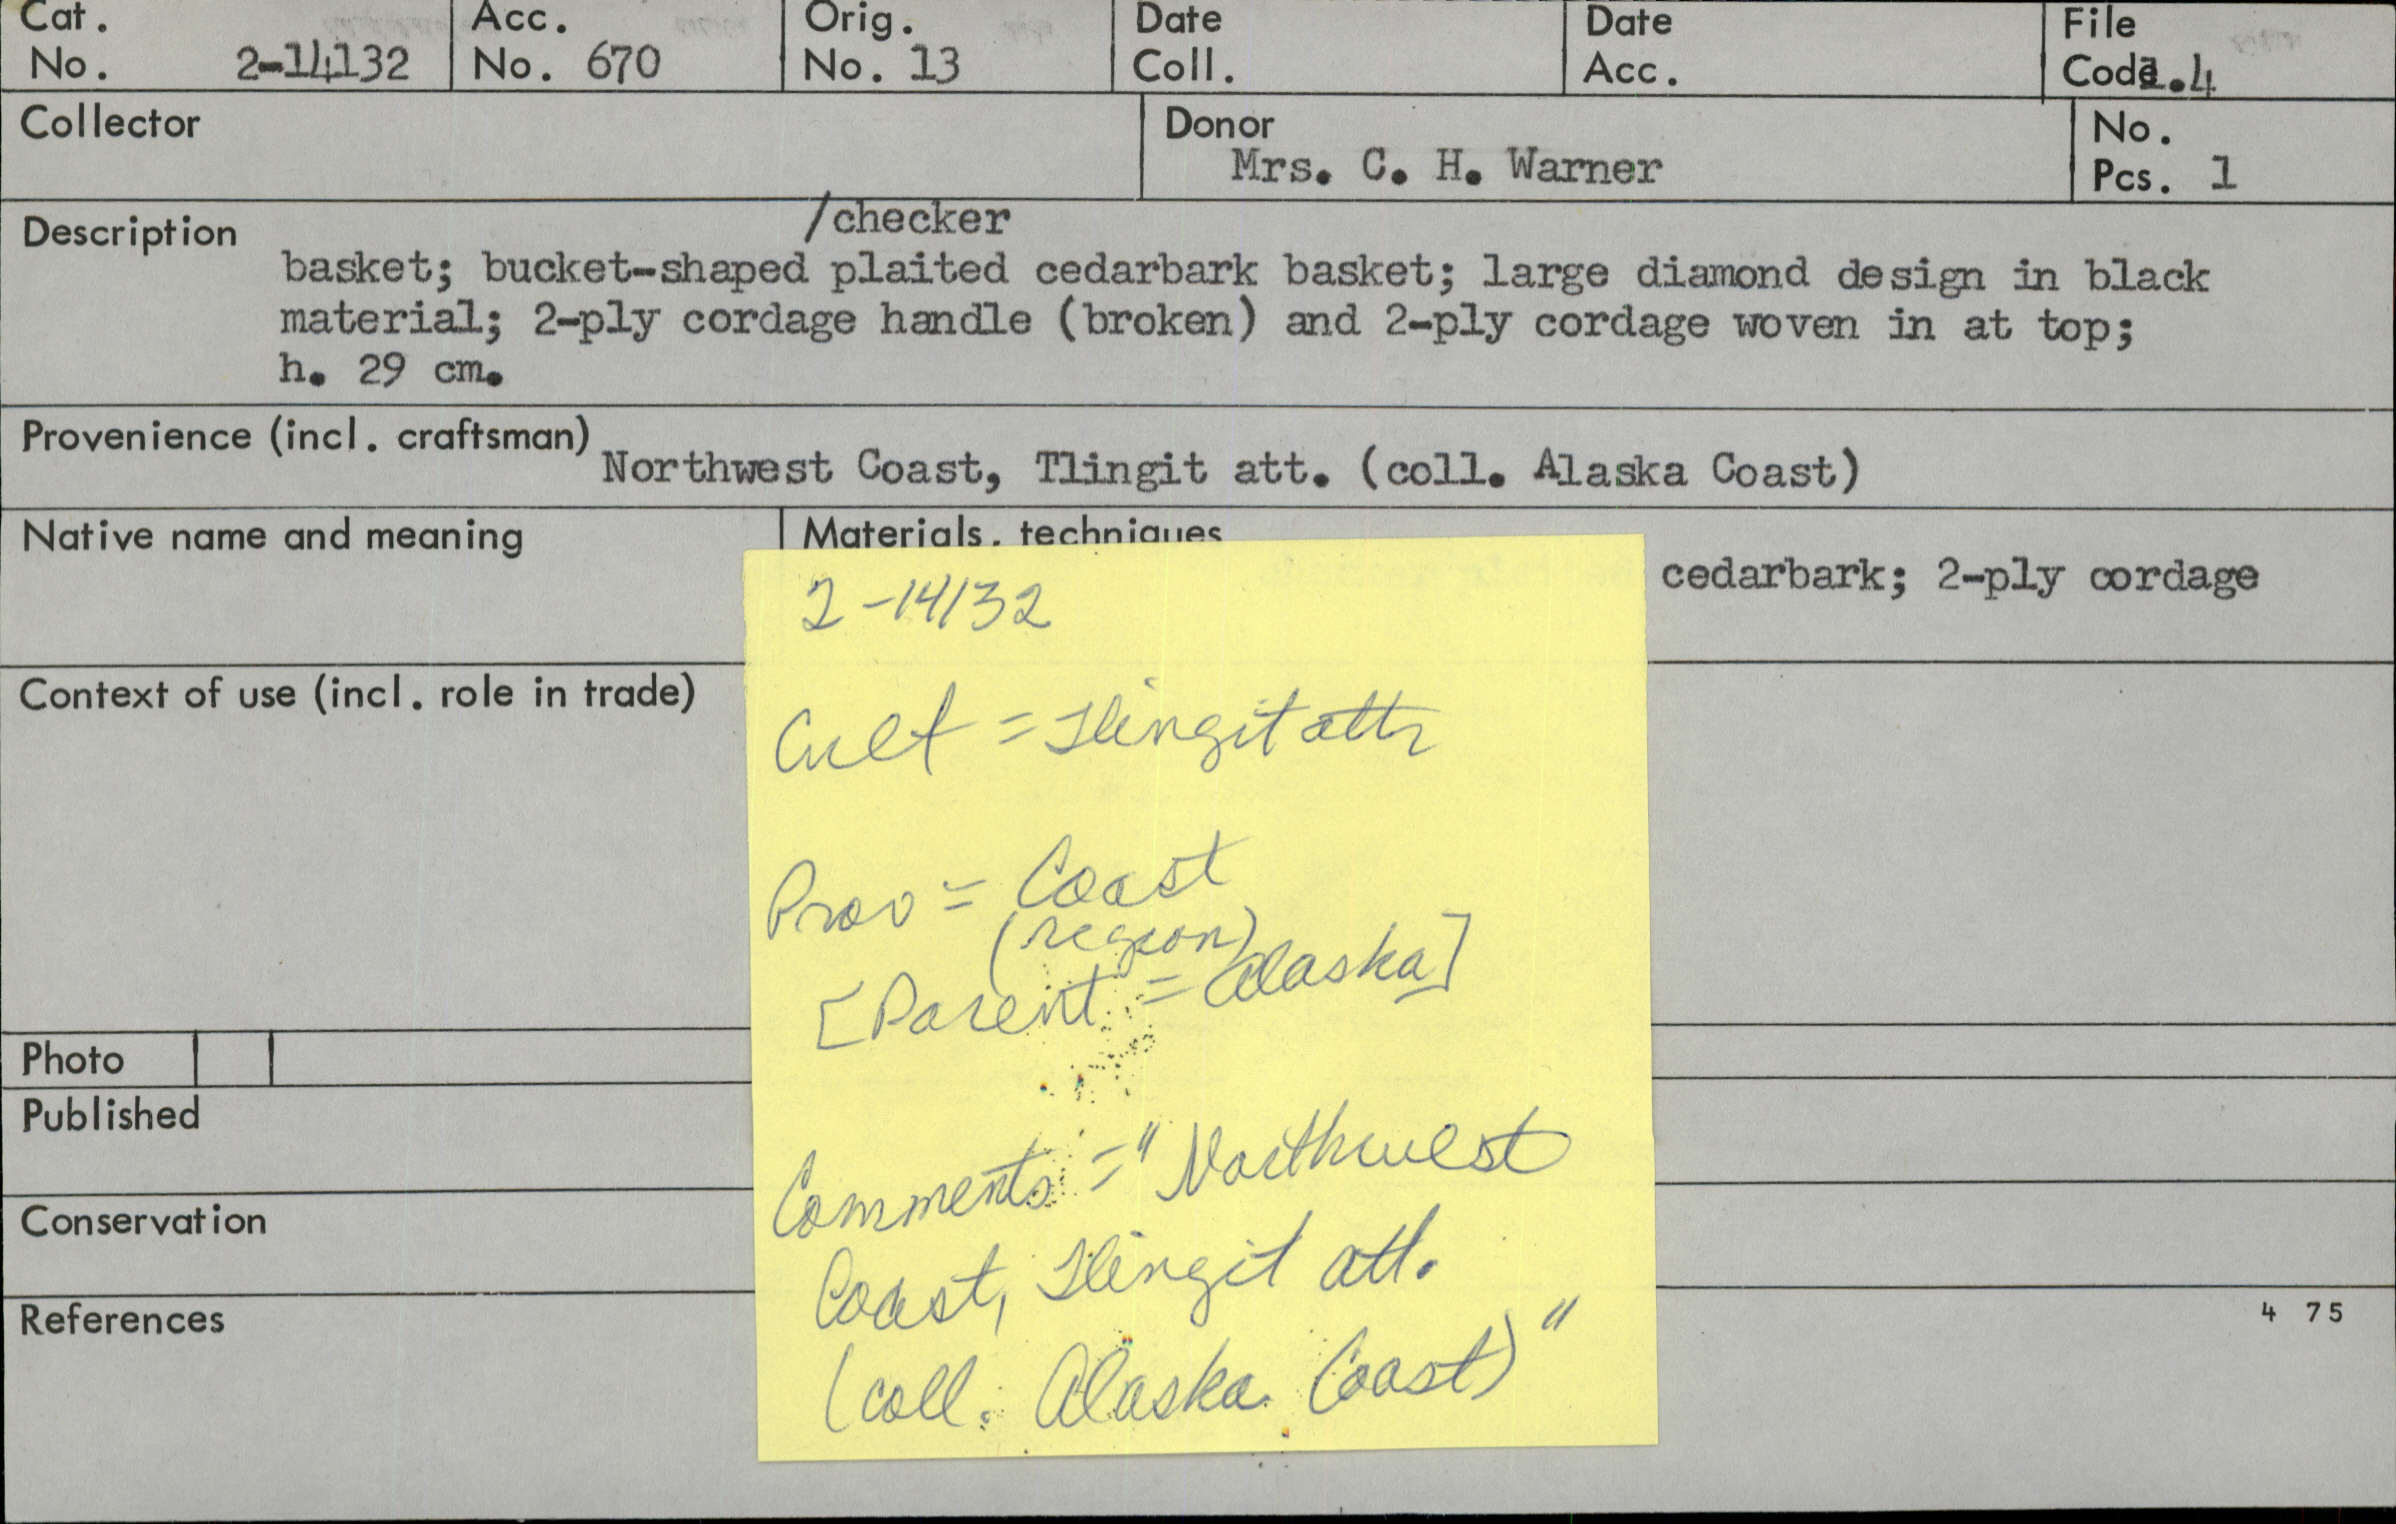 Cat. No. 2-14132
Acc. No. 670
Orig. No. 13
Date Coll.
Date Acc.
File Code .4
Collector
Donor
Mrs. C. H. Warner
No. Pcs. 1
Description
/checker
basket; bucket-shaped plaited cedarbark basket; large diamond design in black
material; 2-ply cordage handle (broken) and 2-ply cordage woven in at top;
h. 29 cm.
Provenience (incl. craftsman)
Northwest Coast, Tlingit att. (coll. Alaska Coast)
Native name and meaning
Materials, techniques
cedarbark; 2-ply cordage
2-14132
Cult = Tlingit attr
Prov = Coast
(region)
[Parent = Alaska]
Comments = "Northwest
Coast, Tlingit att.
(coll. Alaska Coast)"
Context of use (incl. role in trade)
Photo
Published
Conservation
References
4 75